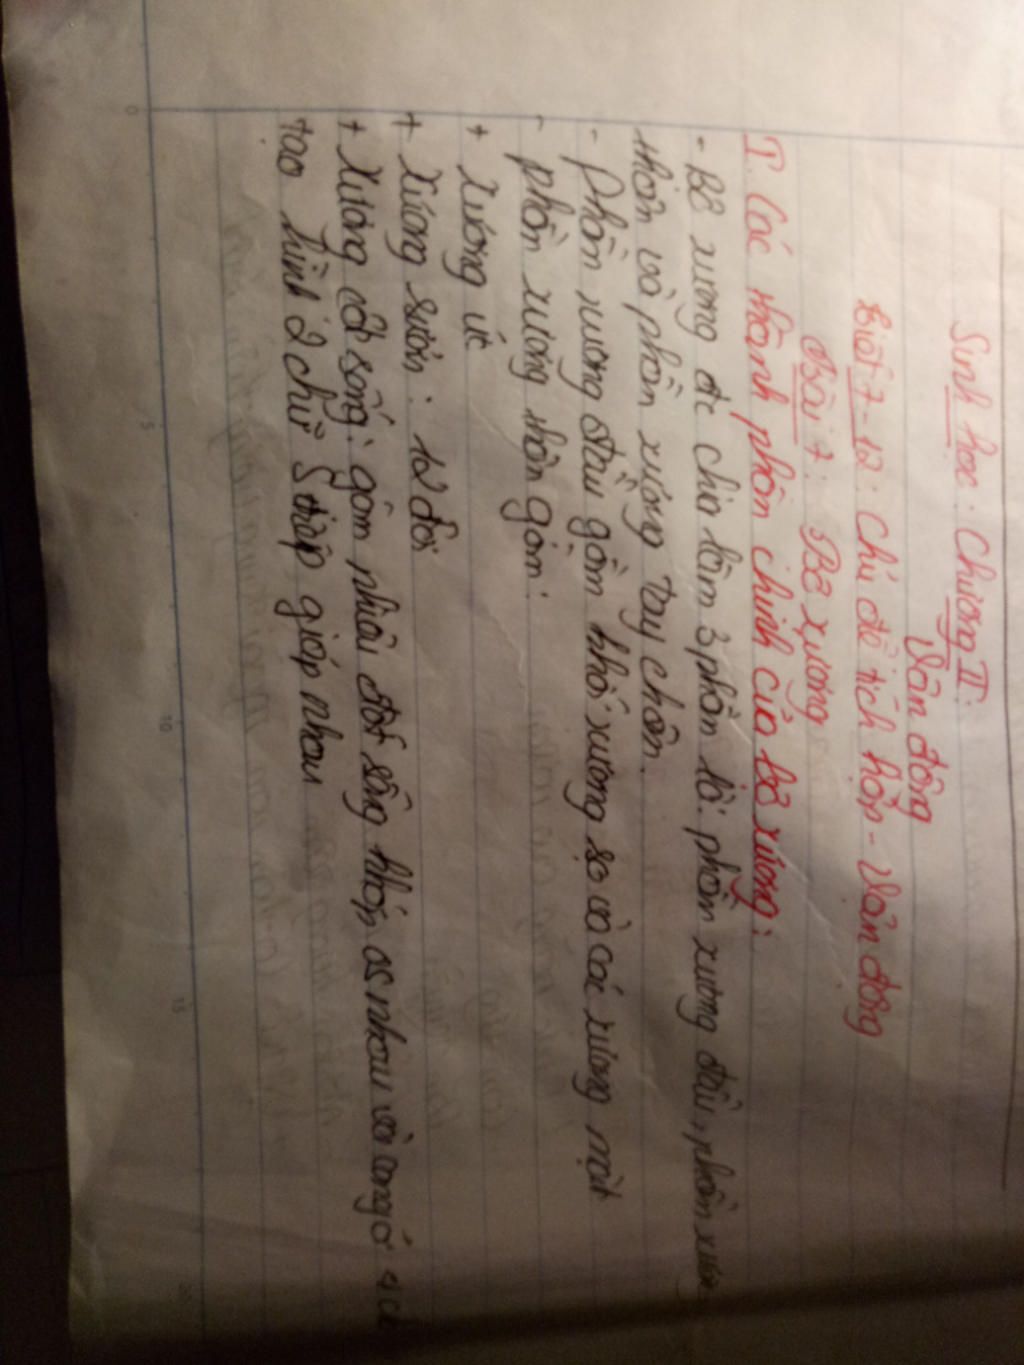 Sinh học: Chương II:
Vận động
Tiết 7-12: Chủ đề tích hợp - Vận động
Bài 7: Bộ xương
I. Các thành phần chính của bộ xương:
- Bộ xương đc chia làm 3 phần là: phần xương đầu, phần xương
thân và phần xương tay chân.
- Phần xương đầu gồm khối xương sọ và các xương mặt
- phần xương thân gồm:
+ Xương ức
+ Xương sườn: 12 đôi
+ Xương cột sống: gồm nhiều đốt sống khớp vs nhau và cong ở 4 chỗ
tạo hình 2 chữ S tiếp giáp nhau
0
5
10
15
20